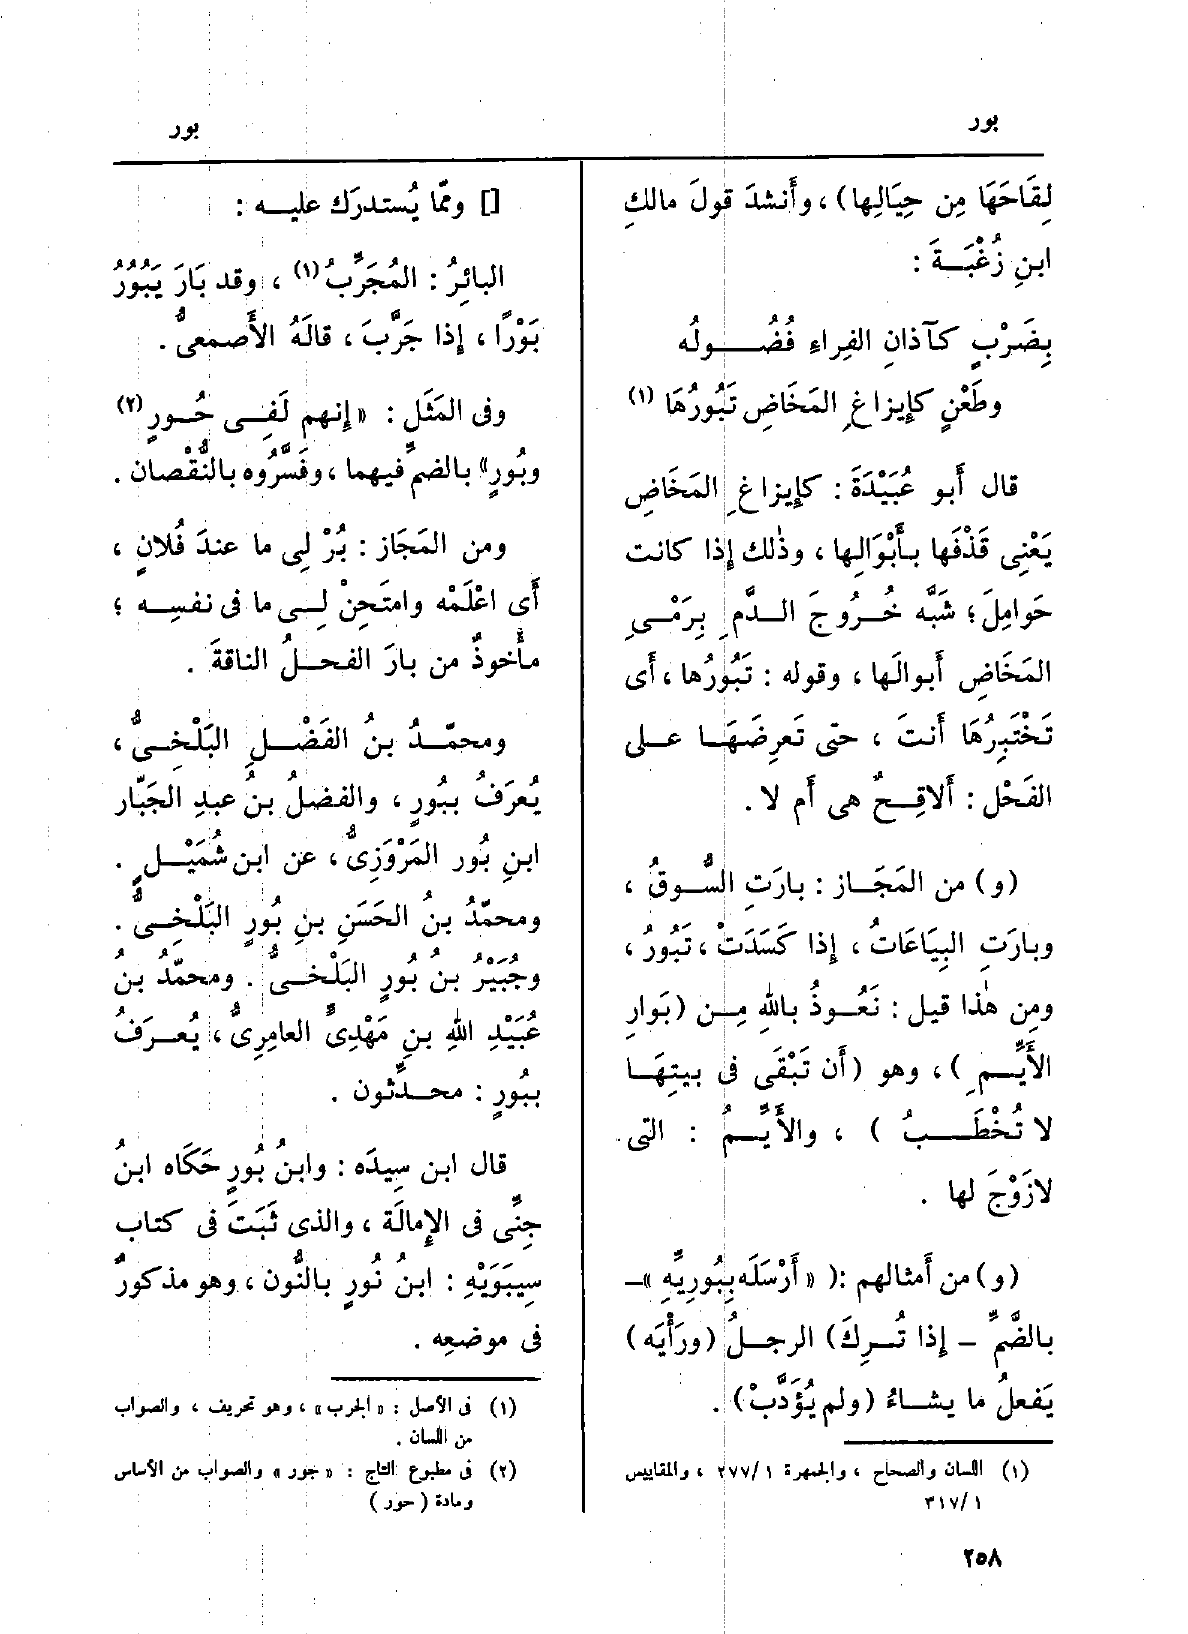 بور
بور
لِقَاحَهَا مِن حِيَالِها) ، وأَنشدَ قولَ مالكِ
ابنِ زُغْبَـةَ :
بِضَرْبٍ كَآذانِ الفِراءِ فُضُـولُه
وطَعْنٍ كإِيزاغِ المَخَاضِ تَبُورُهَا (١)
قال أَبو عُبَيْدَةَ : كإِيزاغِ المَخَاضِ
يَعْنِى قَذْفَها بأَبْوَالِها ، وذٰلك إِذا كانت
حَوامِلَ ؛ شَبَّه خُـرُوجَ الـدَّمِ بِرَمْـىِ
المَخَاضِ أَبوالَها ، وقوله : تَبُورُها ، أَى
تَخْتَبِرُهَا أَنتَ ، حتى تَعرِضَهَـا علـى
الفَحْلِ : أَلاقِـحٌ هى أَم لا .
(و) من المَجَـاز : بارَتِ السُّوقُ ،
وبارَتِ البِيَاعَاتُ ، إِذا كَسَدَتْ ، تَبُورُ ،
ومِن هٰذا قيل : نَعُـوذُ باللهِ مِـن (بَوارِ
الأَيِّـمِ ) ، وهو (أَن تَبْقَى فى بيتِهَـا
لا تُخْطَـبُ ) ، والأَيِّـمُ : التى
لازَوْجَ لها .
(و) من أَمثالهم :( « أَرْسَلَه بِبُورِيِّهِ »ـ
بالضَّمِّ ـ إِذا تُـرِكَ) الرجـلُ (ورَأْيَه )
يَفعلُ ما يشـاءُ (ولم يُؤَدَّبْ) .
(١) اللسان والصحاح ، والجمهرة ١ /٢٧٧ ، والمقاييس
١ /٣١٧
[] وممّا يُستدرَك عليـه :
البائِرُ : المُجَرِّبُ (١) ، وقد بَارَ يَبُوْرُ
بَوْرًا ، إِذا جَرَّبَ ، قالَهُ الأَصمعىُّ .
وفى المَثَل : « إِنهم لَفِـى حُـورٍ (٢)
وبُورٍ» بالضمِّ فيهما ، وفَسَّرُوه بالنُّقْصان .
ومن المَجَاز : بُرْ لِى ما عندَ فُلانٍ ،
أَى اعْلَمْه وامتَحِنْ لِـى ما فى نفسِـه ؛
مأْخوذٌ من بارَ الفحـلُ الناقةَ .
ومحمّـدُ بنُ الفَضْـلِ البَلْخِـىُّ ،
يُعرَفُ ببُورٍ ، والفضلُ بن عبدِ الجَبّار
ابنِ بُور المَرْوَزِىُّ ، عن ابن شُمَيْـلٍ .
ومحمّدُ بنُ الحَسَنِ بنِ بُورٍ البَلْخِـىُّ .
وجُبَيْرُ بنُ بُورٍ البَلْخـىُّ . ومحمّدُ بنُ
عُبَيْدِ اللهِ بنِ مَهْدِىٍّ العامِرِىُّ ، يُعـرَفُ
ببُورٍ : محـدِّثون .
قال ابن سِيدَه : وابنُ بُورٍ حَكَاه ابنُ
جِنِّى فى الإِمالَة ، والذى ثَبَتَ فى كتاب
سِيبَوَيْهِ : ابنُ نُورٍ بالنُّون ، وهو مذكورٌ
فى موضعِه .
(١) فى الأصل : « الجرب » ، وهو تحريف ، والصواب
من اللسان .
(٢) فى مطبوع التاج : « جور » والصواب من الأساس
ومادة ( حور )
٢٥٨